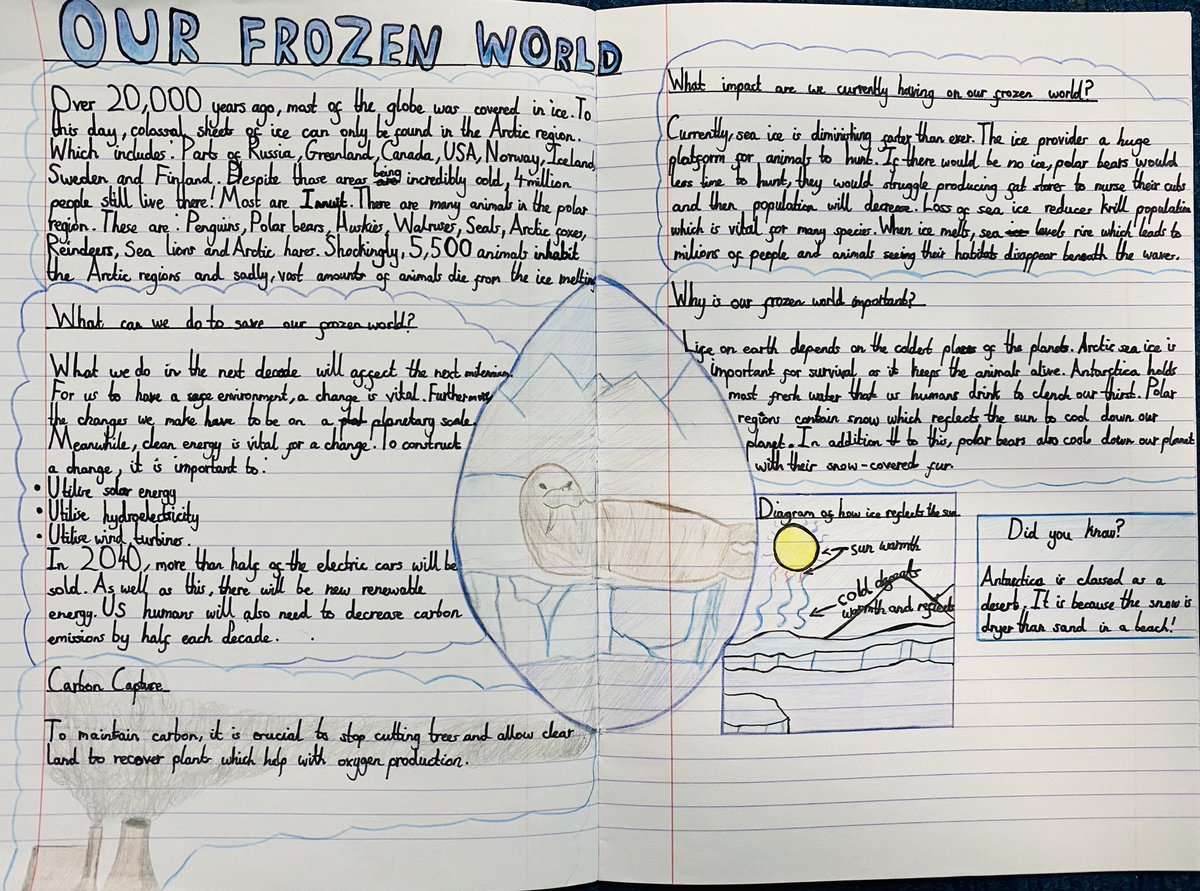 OUR FROZEN WORLD
Over 20,000 years ago, most of the globe was covered in ice. To
this day, colossal sheets of ice can only be found in the Arctic region.
Which includes: Parts of Russia, Greenland, Canada, USA, Norway, Iceland,
Sweden and Finland. Despite those areas being incredibly cold, 4 million
people still live there! Most are Innuit. There are many animals in the polar
region. These are: Penguins, Polar bears, Huskies, Walruses, Seals, Arctic foxes,
Reindeers, Sea lions and Arctic hares. Shockingly, 5,500 animals inhabit
the Arctic regions and sadly, vast amounts of animals die from the ice melting
What can we do to save our frozen world?
What we do in the next decade will affect the next millennium.
For us to have a safe environment, a change is vital. Furthermore,
the changes we make have to be on a planetary scale.
Meanwhile, clean energy is vital for a change. To construct
a change, it is important to:
• Utilise solar energy
• Utilise hydroelectricity
• Utilise wind turbines.
In 2040, more than half of the electric cars will be
sold. As well as this, there will be new renewable
energy. US humans will also need to decrease carbon
emissions by half each decade.
Carbon Capture
To maintain carbon, it is crucial to stop cutting trees and allow clear
land to recover plants which help with oxygen production.
What impact are we currently having on our frozen world?
Currently, sea ice is diminishing faster than ever. The ice provides a huge
platform for animals to hunt. If there would be no ice, polar bears would
less time to hunt, they would struggle producing fat stores to nurse their cubs
and then population will decrease. Loss of sea ice reduces krill population
which is vital for many species. When ice melts, sea levels rise which leads to
millions of people and animals seeing their habitats disappear beneath the waves.
Why is our frozen world important?
Life on earth depends on the coldest places of the planets. Arctic sea ice is
important for survival as it keeps the animals alive. Antarctica holds
most fresh water that us humans drink to clench our thirst. Polar
regions contain snow which reflects the sun to cool down our
planet. In addition to this, polar bears also cools down our planet
with their snow-covered fur.
Diagram of how ice reflects the sun
sun warmth
cold defeats
warmth and reflects
Did you know?
Antarctica is classed as a
desert. It is because the snow is
dryer than sand in a beach!